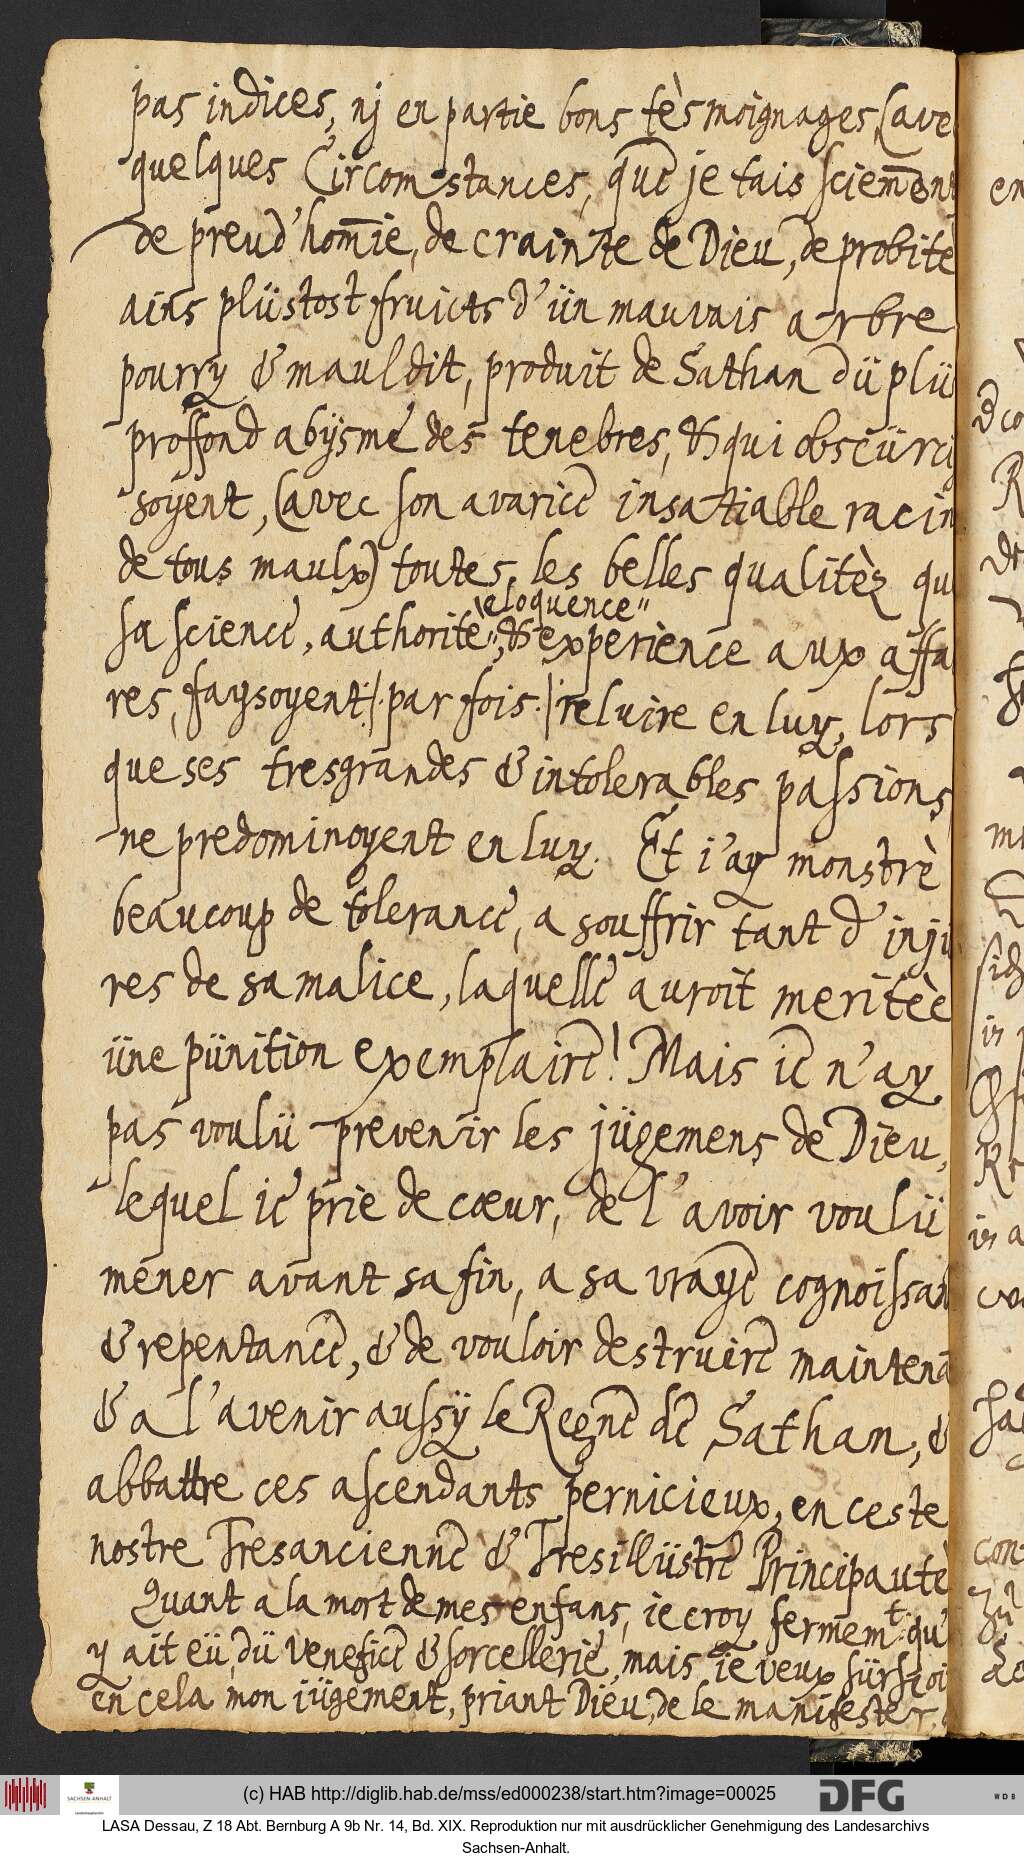 pas indices, nj en partie bons tèsmoignages, (ave
quelques Circomstances, que je tais sciem̄ent
de preud'hom̄ie, de crainte de Dieu, de probitè
ains plüstost fruicts d'ün mauvais arbre
pourry & mauldit, produit de Sathan dü plü
proffond abÿsme des tenebres, & qui obscürcis
soyent, (avec son avarice insatiable racin
de tous maulx) toutes, les belles qualitèz qu
eloquence"
sa science, authoritè", & experience aux affa
res, faysoyent /: par fois :/ reluire en luy, lors
que ses tresgrandes & intolerables passions
ne predominoyent en luy. Et i'ay monstrè
beaucoup de tolerance, a souffrir tant d'inju
res de sa malice, laquelle auroit meritèe
üne pünition exemplaire! Mais ie n'ay
pas voulü prevenir les jügemens de Dieu,
lequel ie prie de cœur, de l'avoir voulü
mener avant sa fin, a sa vraye cognoissan
& repentance, & de vouloir destruire maintena
& a l'avenir aussÿ le Regne de Sathan, &
abbattre ces ascendants pernicieux, en ceste
nostre Tresancienne & Tresillüstre Principautè
Quant a la mort de mes enfans, ie croy fermem̄t: qu'
y ait eü, dü venefice & sorcellerie, mais ie veux sürsoi
en cela mon iügement, priant Dieu, de le manifester.
(c) HAB http://diglib.hab.de/mss/ed000238/start.htm?image=00025
SACHSEN-ANHALT
DFG
WDB
LASA Dessau, Z 18 Abt. Bernburg A 9b Nr. 14, Bd. XIX. Reproduktion nur mit ausdrücklicher Genehmigung des Landesarchivs
Sachsen-Anhalt.